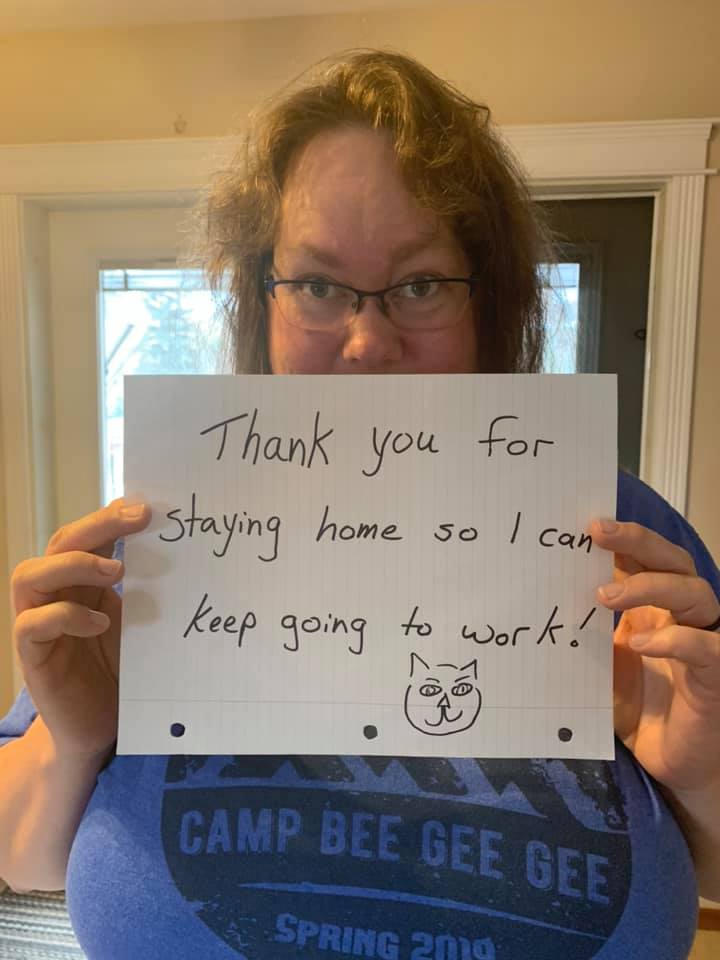 Thank you for
staying home so I can
keep going to work!
CAMP BEE GEE GEE
SPRING 2019